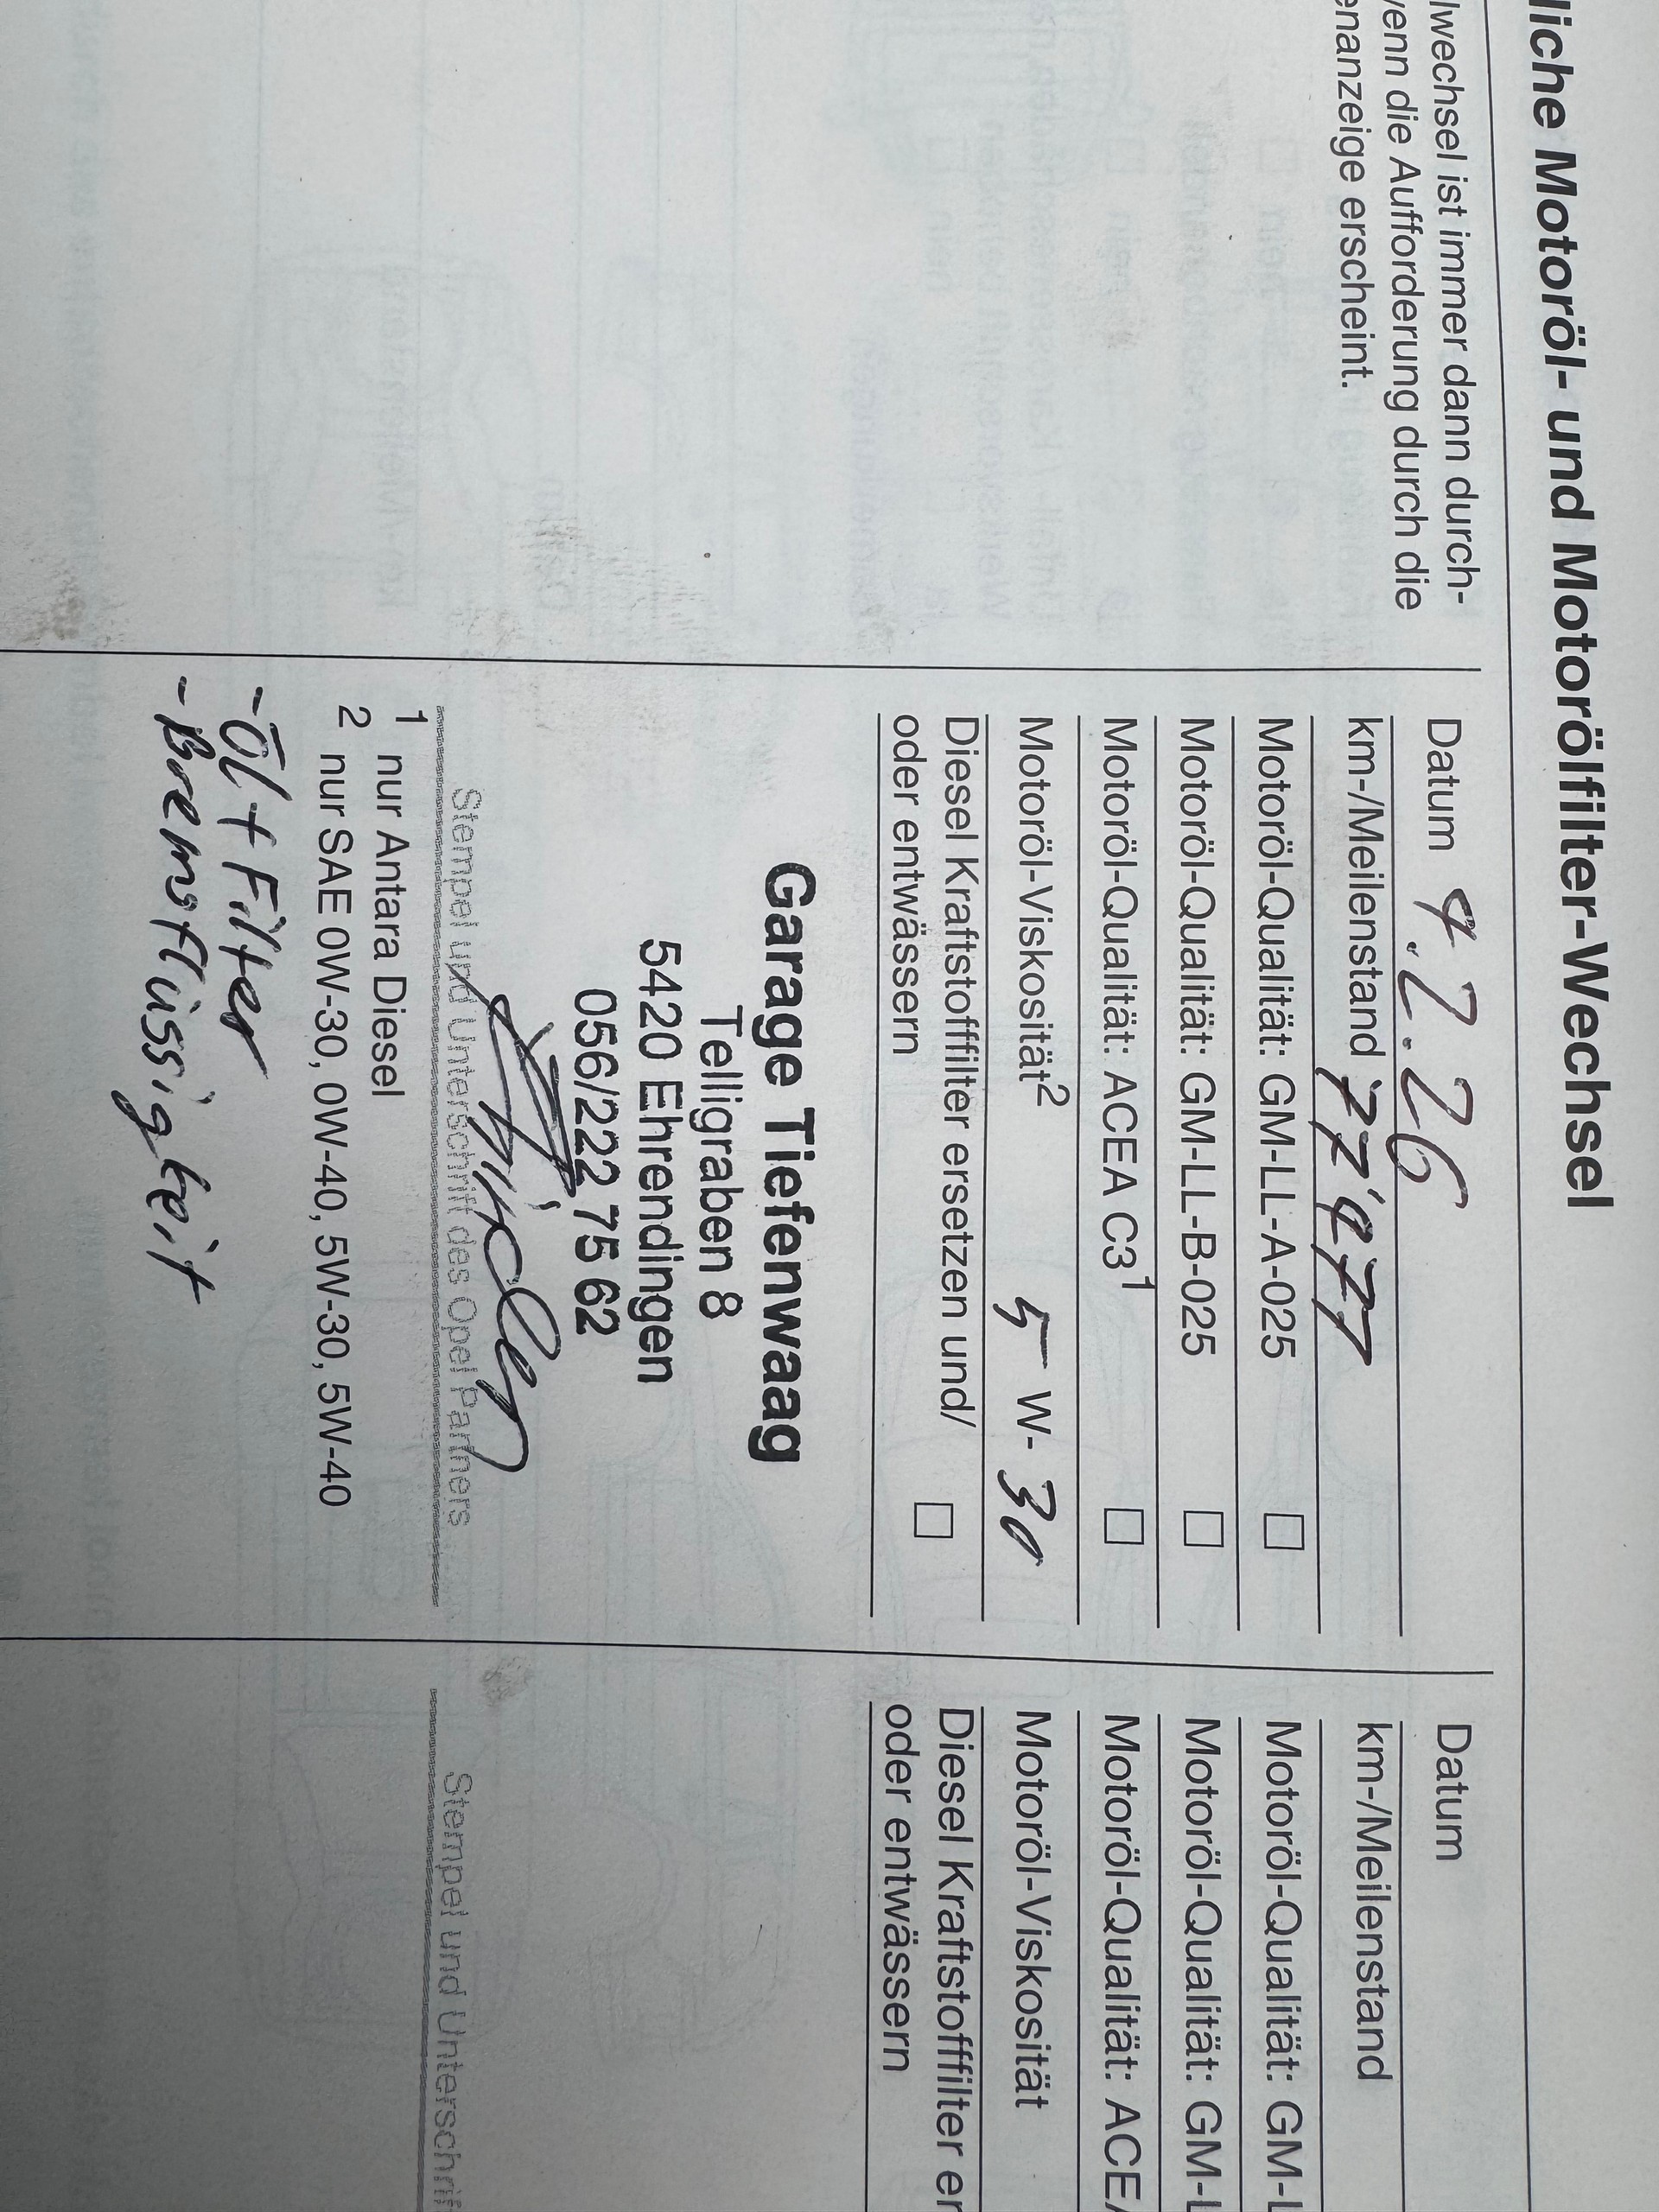 liche Motoröl- und Motorölfilter-Wechsel
lwechsel ist immer dann durch-
enn die Aufforderung durch die
enanzeige erscheint.
Datum 4.2.26
km-/Meilenstand 77'477
Motoröl-Qualität: GM-LL-A-025 □
Motoröl-Qualität: GM-LL-B-025 □
Motoröl-Qualität: ACEA C3¹ □
Motoröl-Viskosität² 5 W- 30
Diesel Kraftstofffilter ersetzen und/
oder entwässern □
Garage Tiefenwaag
Telligraben 8
5420 Ehrendingen
056/222 75 62
Stempel und Unterschrift des Opel Partners
1 nur Antara Diesel
2 nur SAE 0W-30, 0W-40, 5W-30, 5W-40
- Öl + Filter
- Bremsflüssigkeit
Datum
km-/Meilenstand
Motoröl-Qualität: GM-L
Motoröl-Qualität: GM-L
Motoröl-Qualität: ACEA
Motoröl-Viskosität
Diesel Kraftstofffilter er
oder entwässern
Stempel und Unterschrif